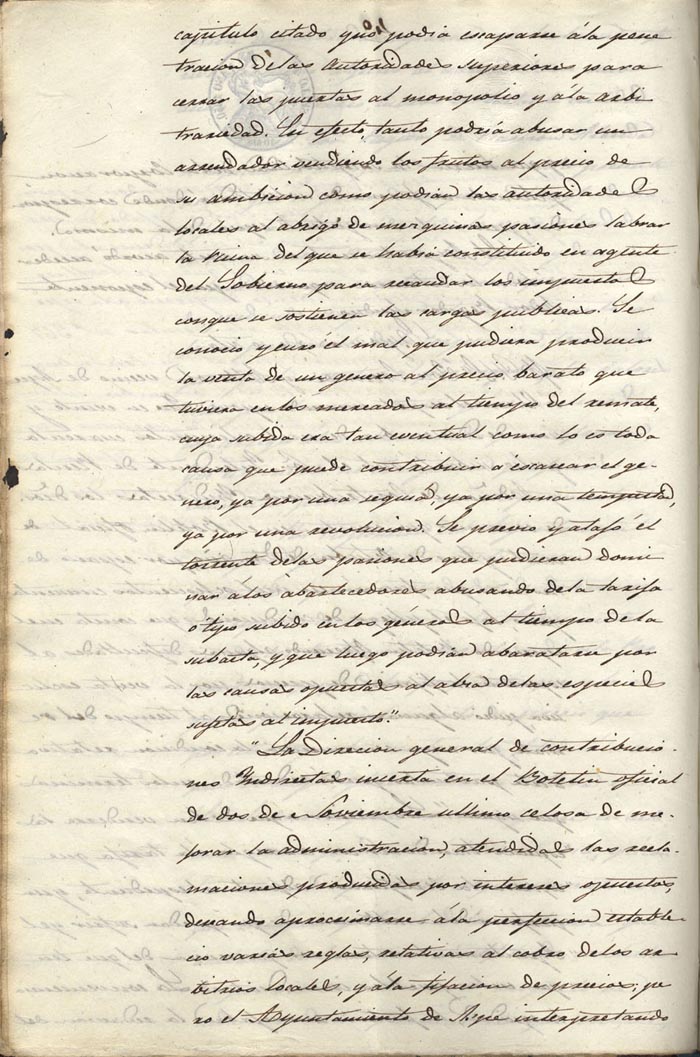 capitulo citado que podia escaparse á la pene
tracion de las autoridades superiores para
cerrar las puertas al monopolio y á la arbi
trariedad. En efecto, tanto podria abusar un
arrendador vendiendo los frutos al precio de
su ambicion como podian las autoridades
locales al abrigo de mezquinas pasiones labrar
la ruina del que se habia constituido en agente
del Gobierno para recaudar los impuestos
conque se sostienen las cargas publicas. Se
conocio y curó el mal que pudiera producir
la venta de un genero al precio barato que
tuviera en los mercados al tiempo del remate,
cuya subida era tan eventual como lo es toda
causa que puede contribuir á escasear el ge-
nero, ya por una sequia, ya por una tempestad,
ya por una revolucion. Se previó y atajó el
torrente de las pasiones que pudieran domi
nar á los abastecedores abusando de la tarifa
ó tipo subido en los géneros al tiempo de la
subasta, y que luego podian abaratarse por
las causas opuestas al alza de las especies
sujetas al impuesto."
"La Direccion general de contribucio-
nes Indirectas inserta en el Boletin oficial
de dos de Noviembre ultimo celosa de me-
jorar la administracion, atendidas las recla-
maciones producidas por intereses opuestos,
deseando aprocsimarse á la perfeccion estable-
cio varias reglas, relativas al cobro de los ar-
bitrios locales, y á la fijacion de precios; pe
ro el Ayuntamiento de Aspe interpretando